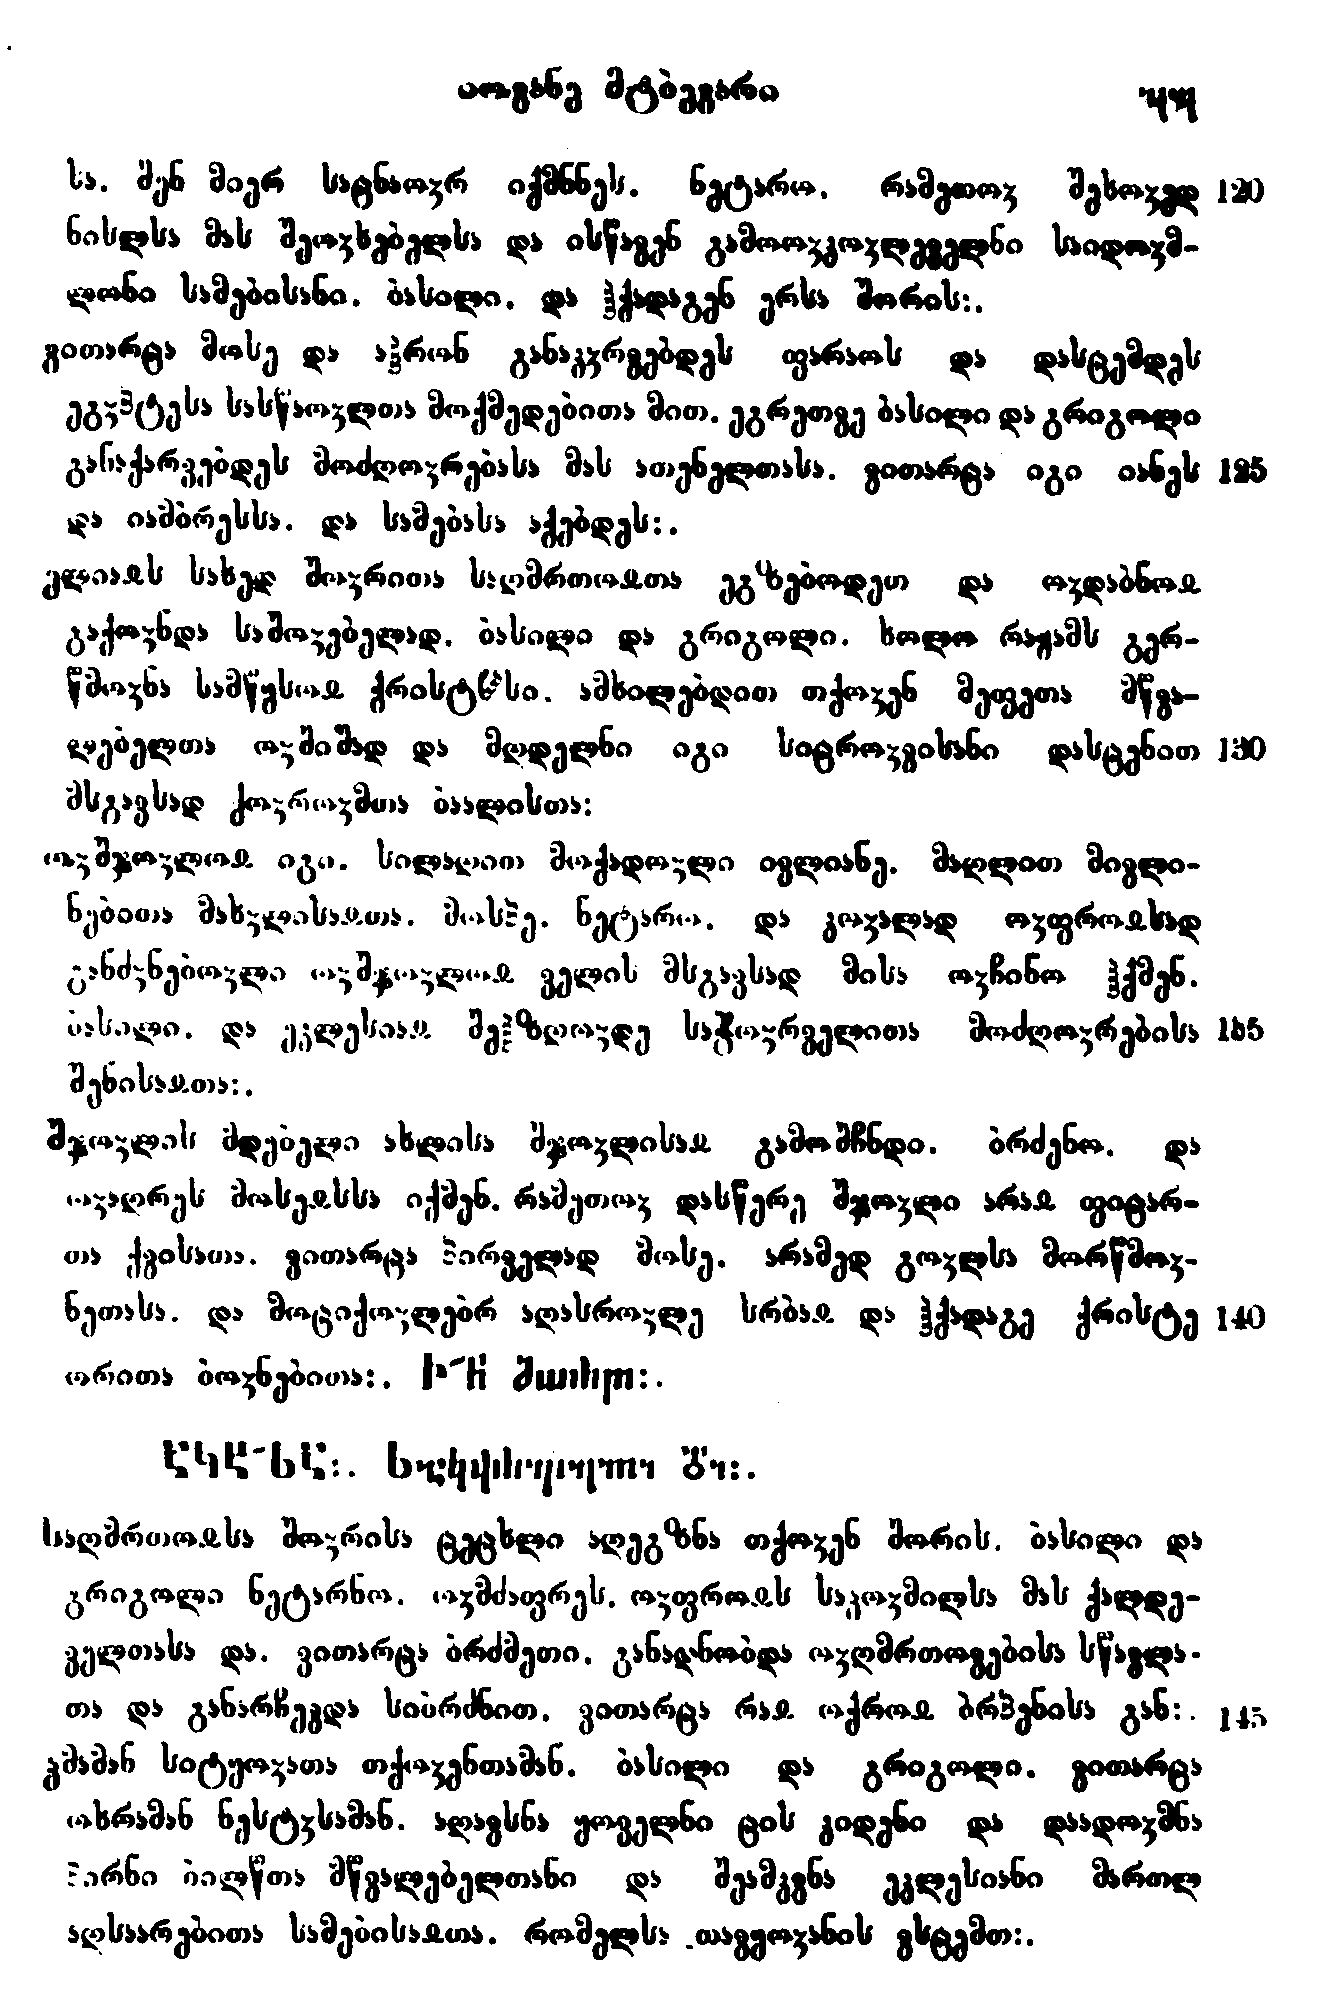 იოვანე მტბევარი
სა. შენ მიერ საცნაოჳრ იქმნნეს. ნეტარო. რამეთოჳ შეხოჳედ 120
ნისლსა მას შეოჳხებელსა და ისწავენ გამოოჳკოჳლეველნი საიდოჳმ-
ლონი სამებისანი. ბასილი. და ჰქადაგენ ერსა შორის:.
ვითარცა მოსე და აჰრონ განაკჳრვებდეს ფარაოს და დასცემდეს
ეგჳპტესა სასწაოჳლთა მოქმედებითა მით. ეგრეთვე ბასილი და გრიგოლი
განაქარვებდეს მოძღოჳრებასა მას ათენელთასა. ვითარცა იგი იანეს 125
და იამბრესსა. და სამებასა აქებდეს:.
ელიაჲს სახედ შოჳრითა საღმრთოჲთა ეგზებოდეთ და ოჳდაბნოჲ
გაქოჳნდა საშოჳებელად. ბასილი და გრიგოლი. ხოლო რაჟამს გერ-
წმოჳნა სამწჳსოჲ ქრისტჱსი. ამხილებდით თქოჳენ მეფეთა მწვა-
ლებელთა ოჳშიშად და მღდელნი იგი სიცროჳვისანი დასცენით 130
მსგავსად ქოჳროჳმთა ბაალისთა:
ოჳშჯოჳლოჲ იგი. სილაღით მოქადოჳლი ივლიანე. მაღლით მივლი-
ნებითა მახჳლისაჲთა. მოსპე. ნეტარო. და კოჳალად ოჳფროჲსად
განძჳნებოჳლი ოჳშჯოჳლოჲ ველის მსგავსად მისა ოჳჩინო ჰქმენ.
ბასილი. და ეკლესიაჲ შეჰზღოჳდე საჭოჳრველითა მოძღოჳრებისა 135
შენისაჲთა:.
შჯოჳლის მდებელი ახლისა შჯოჳლისაჲ გამოშჩნდი. ბრძენო. და
ოჳაღრეს მოსეჲსსა იქმენ. რამეთოჳ დასწერე შჯოჳლი არაჲ ფიცარ-
თა ქვისათა. ვითარცა პირველად მოსე. არამედ გოჳლსა მორწმოჳ-
ნეთასა. და მოციქოჳლებრ აღასროჳლე სრბაჲ და ჰქადაგე ქრისტე 140
ორითა ბოჳნებითა:.
საღმრთოჲსა შოჳრისა ცეცხლი აღეგზნა თქოჳენ შორის. ბასილი და
გრიგოლი ნეტარნო. ოჳმძაფრეს. ოჳფროჲს საკოჳმილსა მას ქალდე-
ველთასა და. ვითარცა ბრძმეთი. განადნობდა ოჳღმრთოვებისა სწავლა-
თა და განარჩევდა სიბრძნით. ვითარცა რაჲ ოქროჲ ბრპენისა გან:. 145
კმამან სიტყოჳათა თქოჳენთამან. ბასილი და გრიგოლი. ვითარცა
ოხრამან ნესტჳსამან. აღავსნა ყოველნი ცის კიდენი და დაადოჳმნა
პირნი ბილწთა მწვალებელთანი და შეამკვნა ეკლესიანი მართლ
აღსაარებითა სამებისაჲთა. რომელსა თავყოჳანის ვსცემთ:.